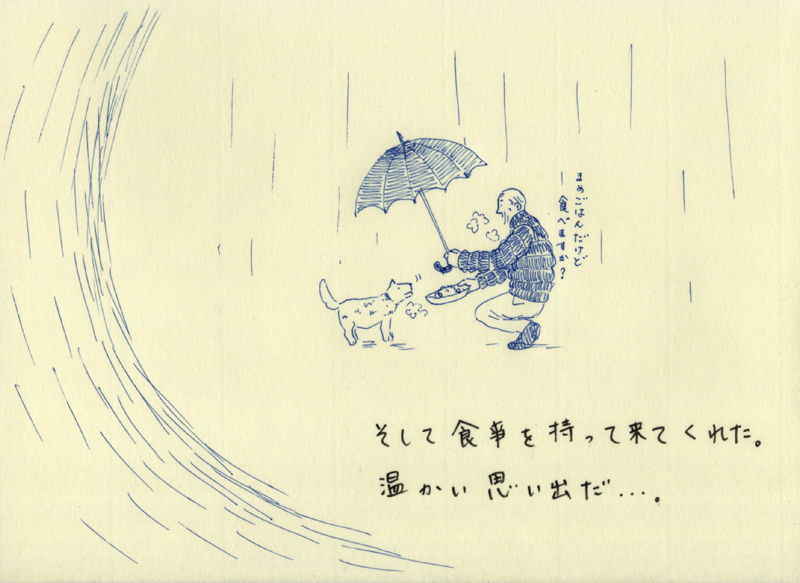 まめごはんだけど
食べますか？
そして食事を持って来てくれた。
温かい思い出だ・・・。